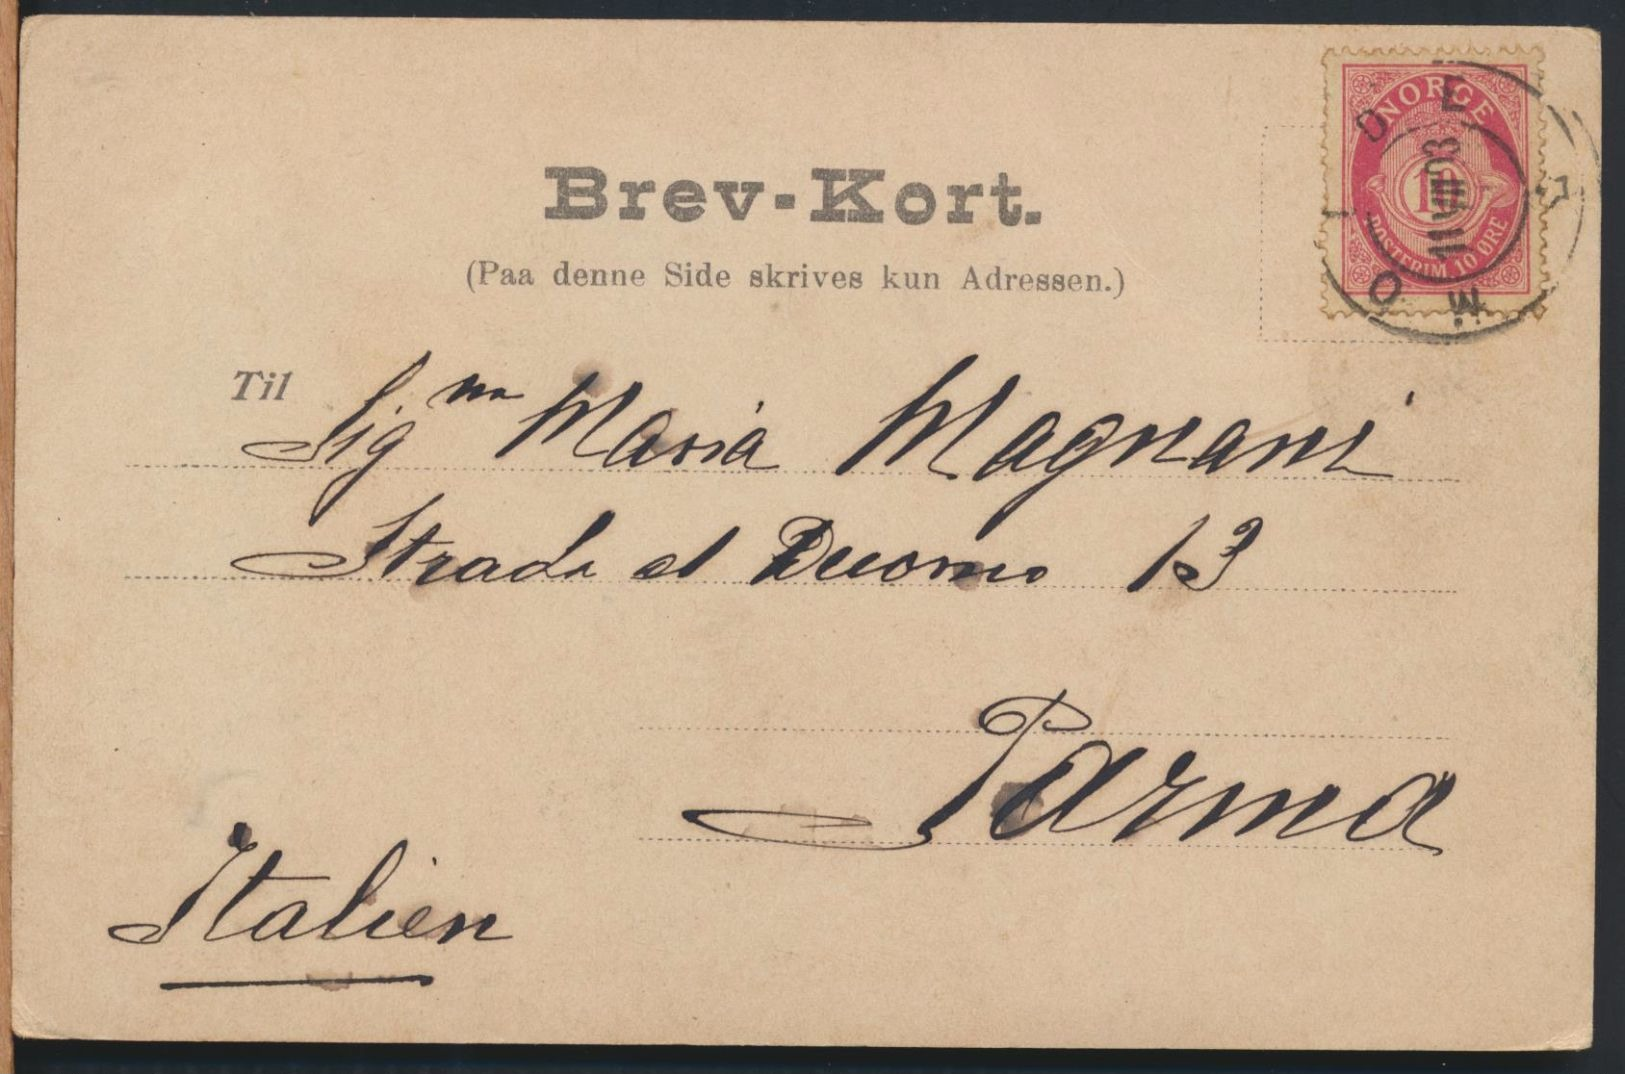 Brev-Kort.
(Paa denne Side skrives kun Adressen.)
NORGE
10
POSTFRIM. 10 ØRE
11 VIII 03
Til Sig.na Maria Magnani
Strada al Duomo 13
Parma
Italien